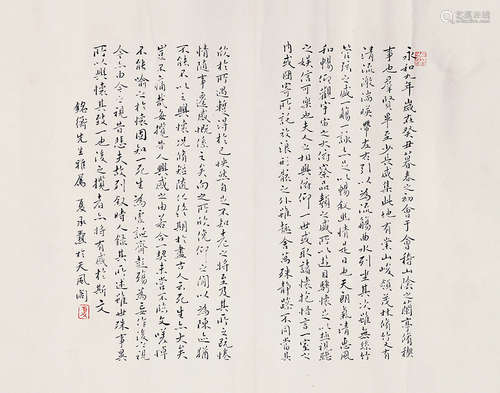 永和九年歲在癸丑暮春之初會于會稽山陰之蘭亭脩稧
事也群賢畢至少長咸集此地有崇山峻領茂林脩竹又有
清流激湍暎帶左右引以為流觴曲水列坐其次雖無絲竹
管弦之盛一觴一詠亦足以暢敘幽情是日也天朗氣清惠風
和暢仰觀宇宙之大俯察品類之盛所以遊目騁懷足以極視聽
之娛信可樂也夫人之相與俯仰一世或取諸懷抱悟言一室之
內或因寄所託放浪形骸之外雖趣舍萬殊靜躁不同當其
欣於所遇暫得於己怏然自足不知老之將至及其所之既惓
情隨事遷感慨係之矣向之所欣俛仰之間以為陳迹猶
不能不以之興懷況脩短隨化終期於盡古人云死生亦大矣
豈不痛哉每攬昔人興感之由若合一契未嘗不臨文嗟悼
不能喻之於懷固知一死生為虛誕齊彭殤為妄作後之視
今亦由今之視昔悲夫故列敘時人錄其所述雖世殊事異
所以興懷其致一也後之攬者亦將有感於斯文
先生雅屬 夏承燾於天風閣